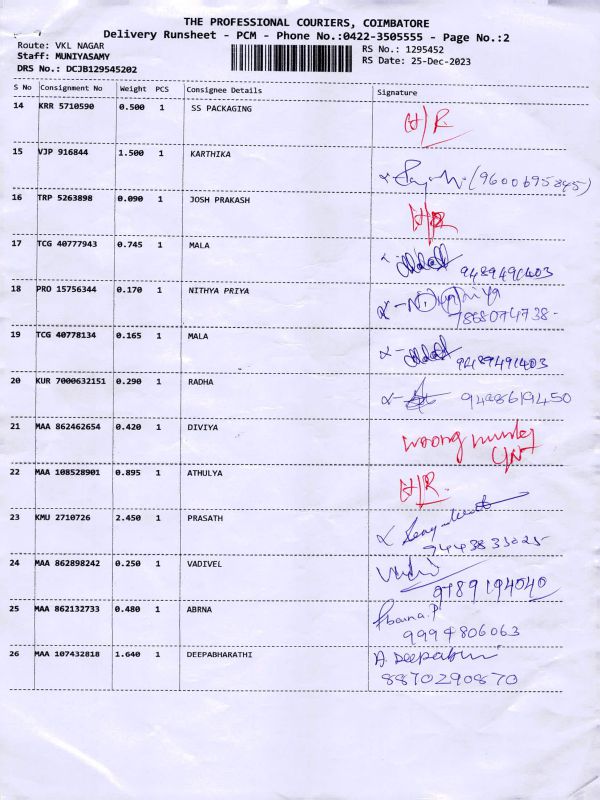 THE PROFESSIONAL COURIERS, COIMBATORE
Delivery Runsheet - PCM - Phone No.:0422-3505555 - Page No.:2
Route: VKL NAGAR RS No.: 1295452
Staff: MUNIYASAMY RS Date: 25-Dec-2023
DRS No.: DCJB129545202
S No Consignment No Weight PCS Consignee Details Signature
14 KRR 5710590 0.500 1 SS PACKAGING H/R
15 VJP 916844 1.500 1 KARTHIKA (9600695845)
16 TRP 5263898 0.090 1 JOSH PRAKASH H/R
17 TCG 40777943 0.745 1 MALA 9489491403
18 PRO 15756344 0.170 1 NITHYA PRIYA
7868074738-
19 TCG 40778134 0.165 1 MALA 9489491403
20 KUR 7000632151 0.290 1 RADHA 9498619450
21 MAA 862462654 0.420 1 DIVIYA wrong number
22 MAA 108528901 0.895 1 ATHULYA H/R.
23 KMU 2710726 2.450 1 PRASATH
9443833025
24 MAA 862898242 0.250 1 VADIVEL
9789194040
25 MAA 862132733 0.480 1 ABRNA
9994806063
26 MAA 107432818 1.640 1 DEEPABHARATHI
8870290870